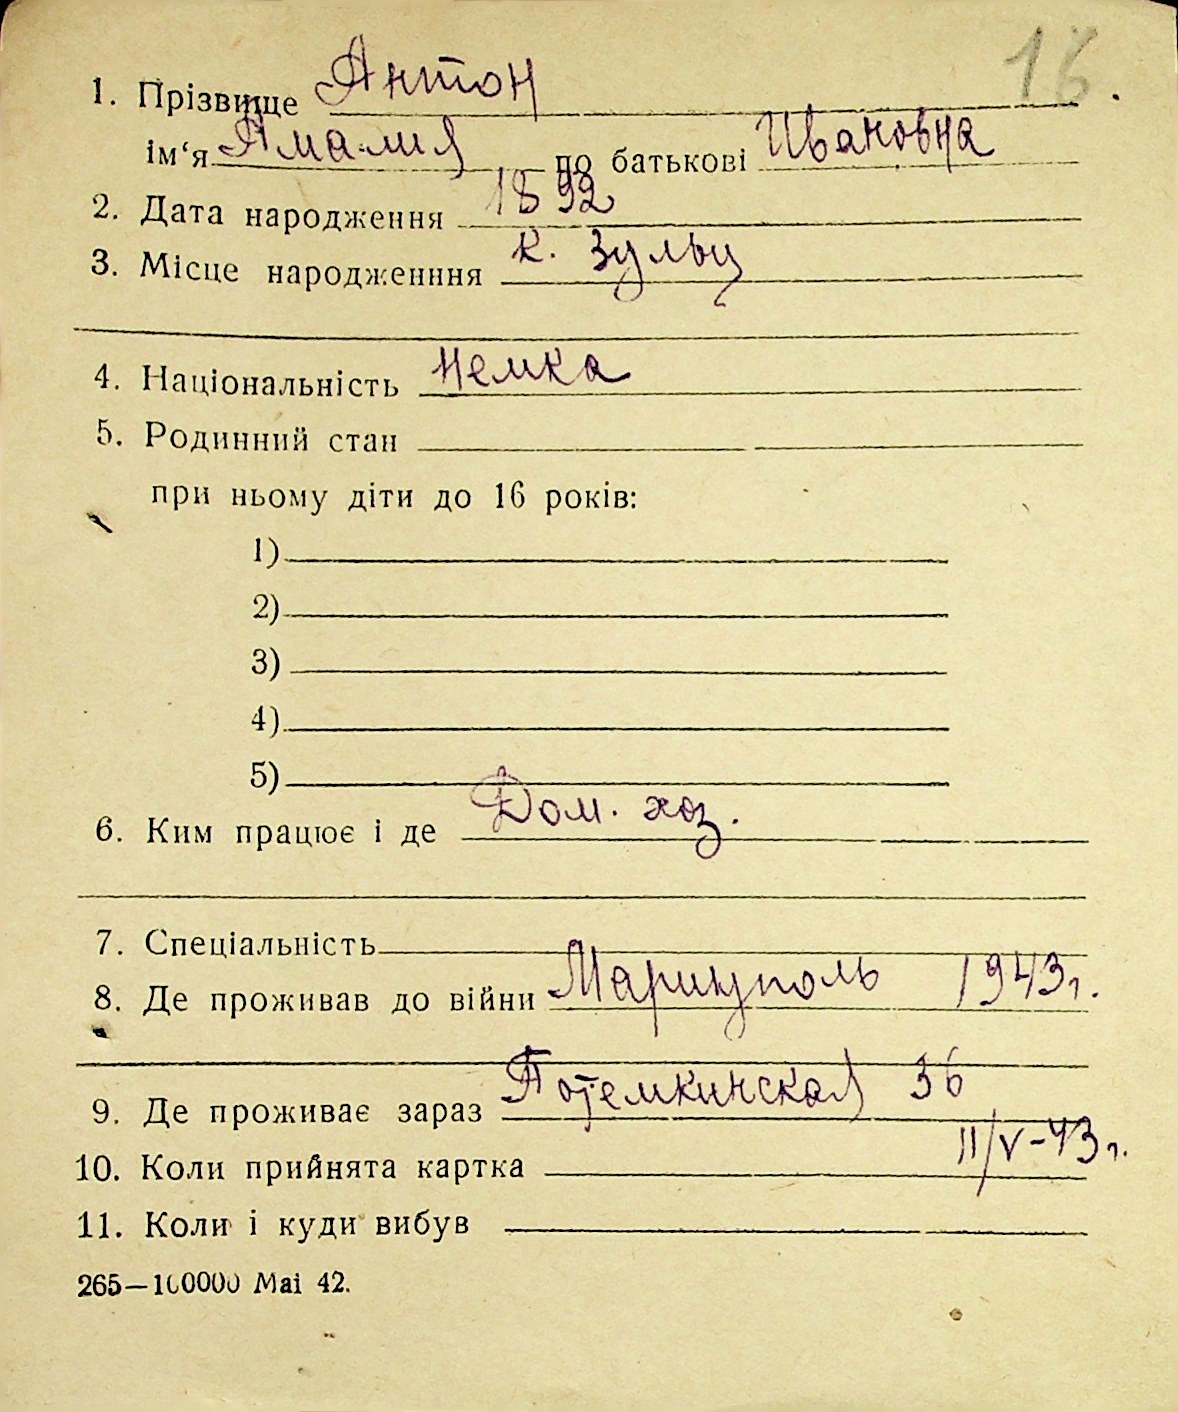 16
1. Прізвище Антон
ім‘я Амалия по батькові Ивановна
2. Дата народження 1892
3. Місце народженння к. Зульц
4. Національність немка
5. Родинний стан
при ньому діти до 16 років:
1)
2)
3)
4)
5)
6. Ким працює і де Дом. хоз.
7. Спеціальність
8. Де проживав до війни Мариуполь 1943 г.
9. Де проживає зараз Потемкинская 36
10. Коли прийнята картка 11/V-43 г.
11. Коли і куди вибув
265—100000 Mai 42.